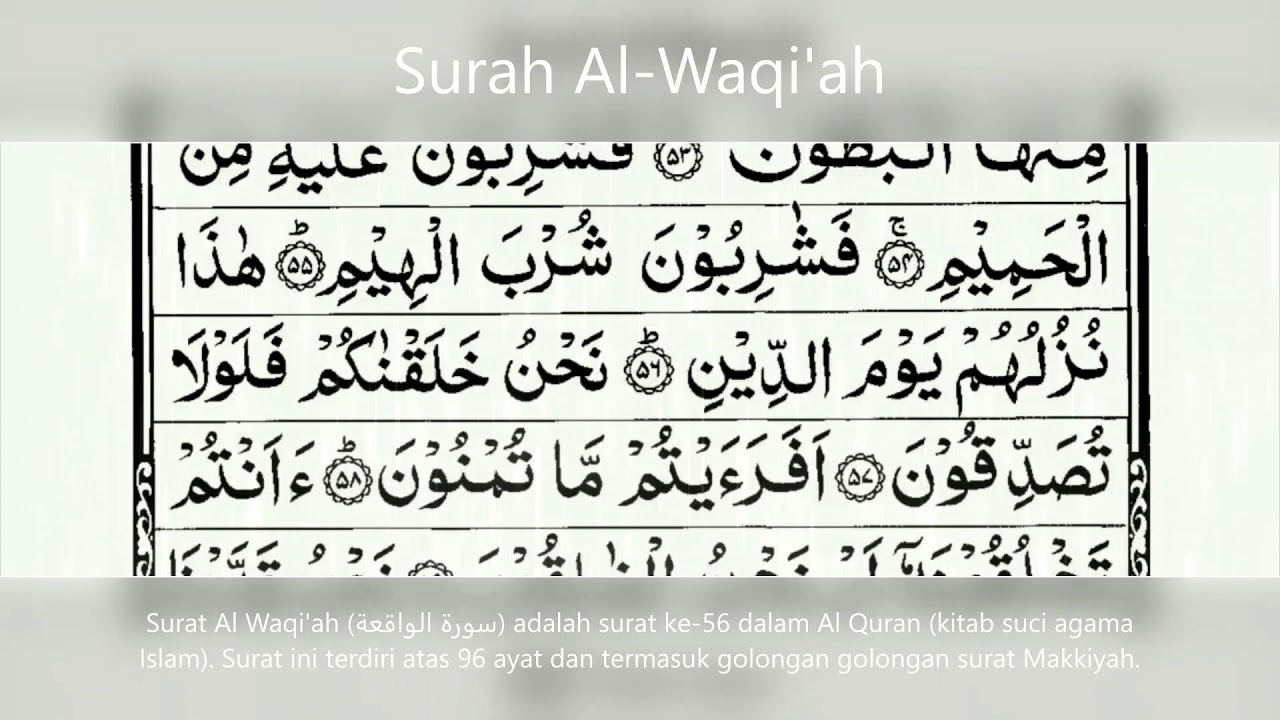 Surah Al-Waqi'ah
مِنْهَا الْبُطُوْنَ ۵۳ فَشٰرِبُوْنَ عَلَيْهِ مِنَ
الْحَمِيْمِ ۵۴ۚ فَشٰرِبُوْنَ شُرْبَ الْهِيْمِ ۵۵ؕ هٰذَا
نُزُلُهُمْ يَوْمَ الدِّيْنِ ۵۶ؕ نَحْنُ خَلَقْنٰكُمْ فَلَوْلَا
تُصَدِّقُوْنَ ۵۷ اَفَرَءَيْتُمْ مَّا تُمْنُوْنَ ۵۸ؕ ءَاَنْتُمْ
Surat Al Waqi'ah (سورة الواقعة) adalah surat ke-56 dalam Al Quran (kitab suci agama
Islam). Surat ini terdiri atas 96 ayat dan termasuk golongan golongan surat Makkiyah.